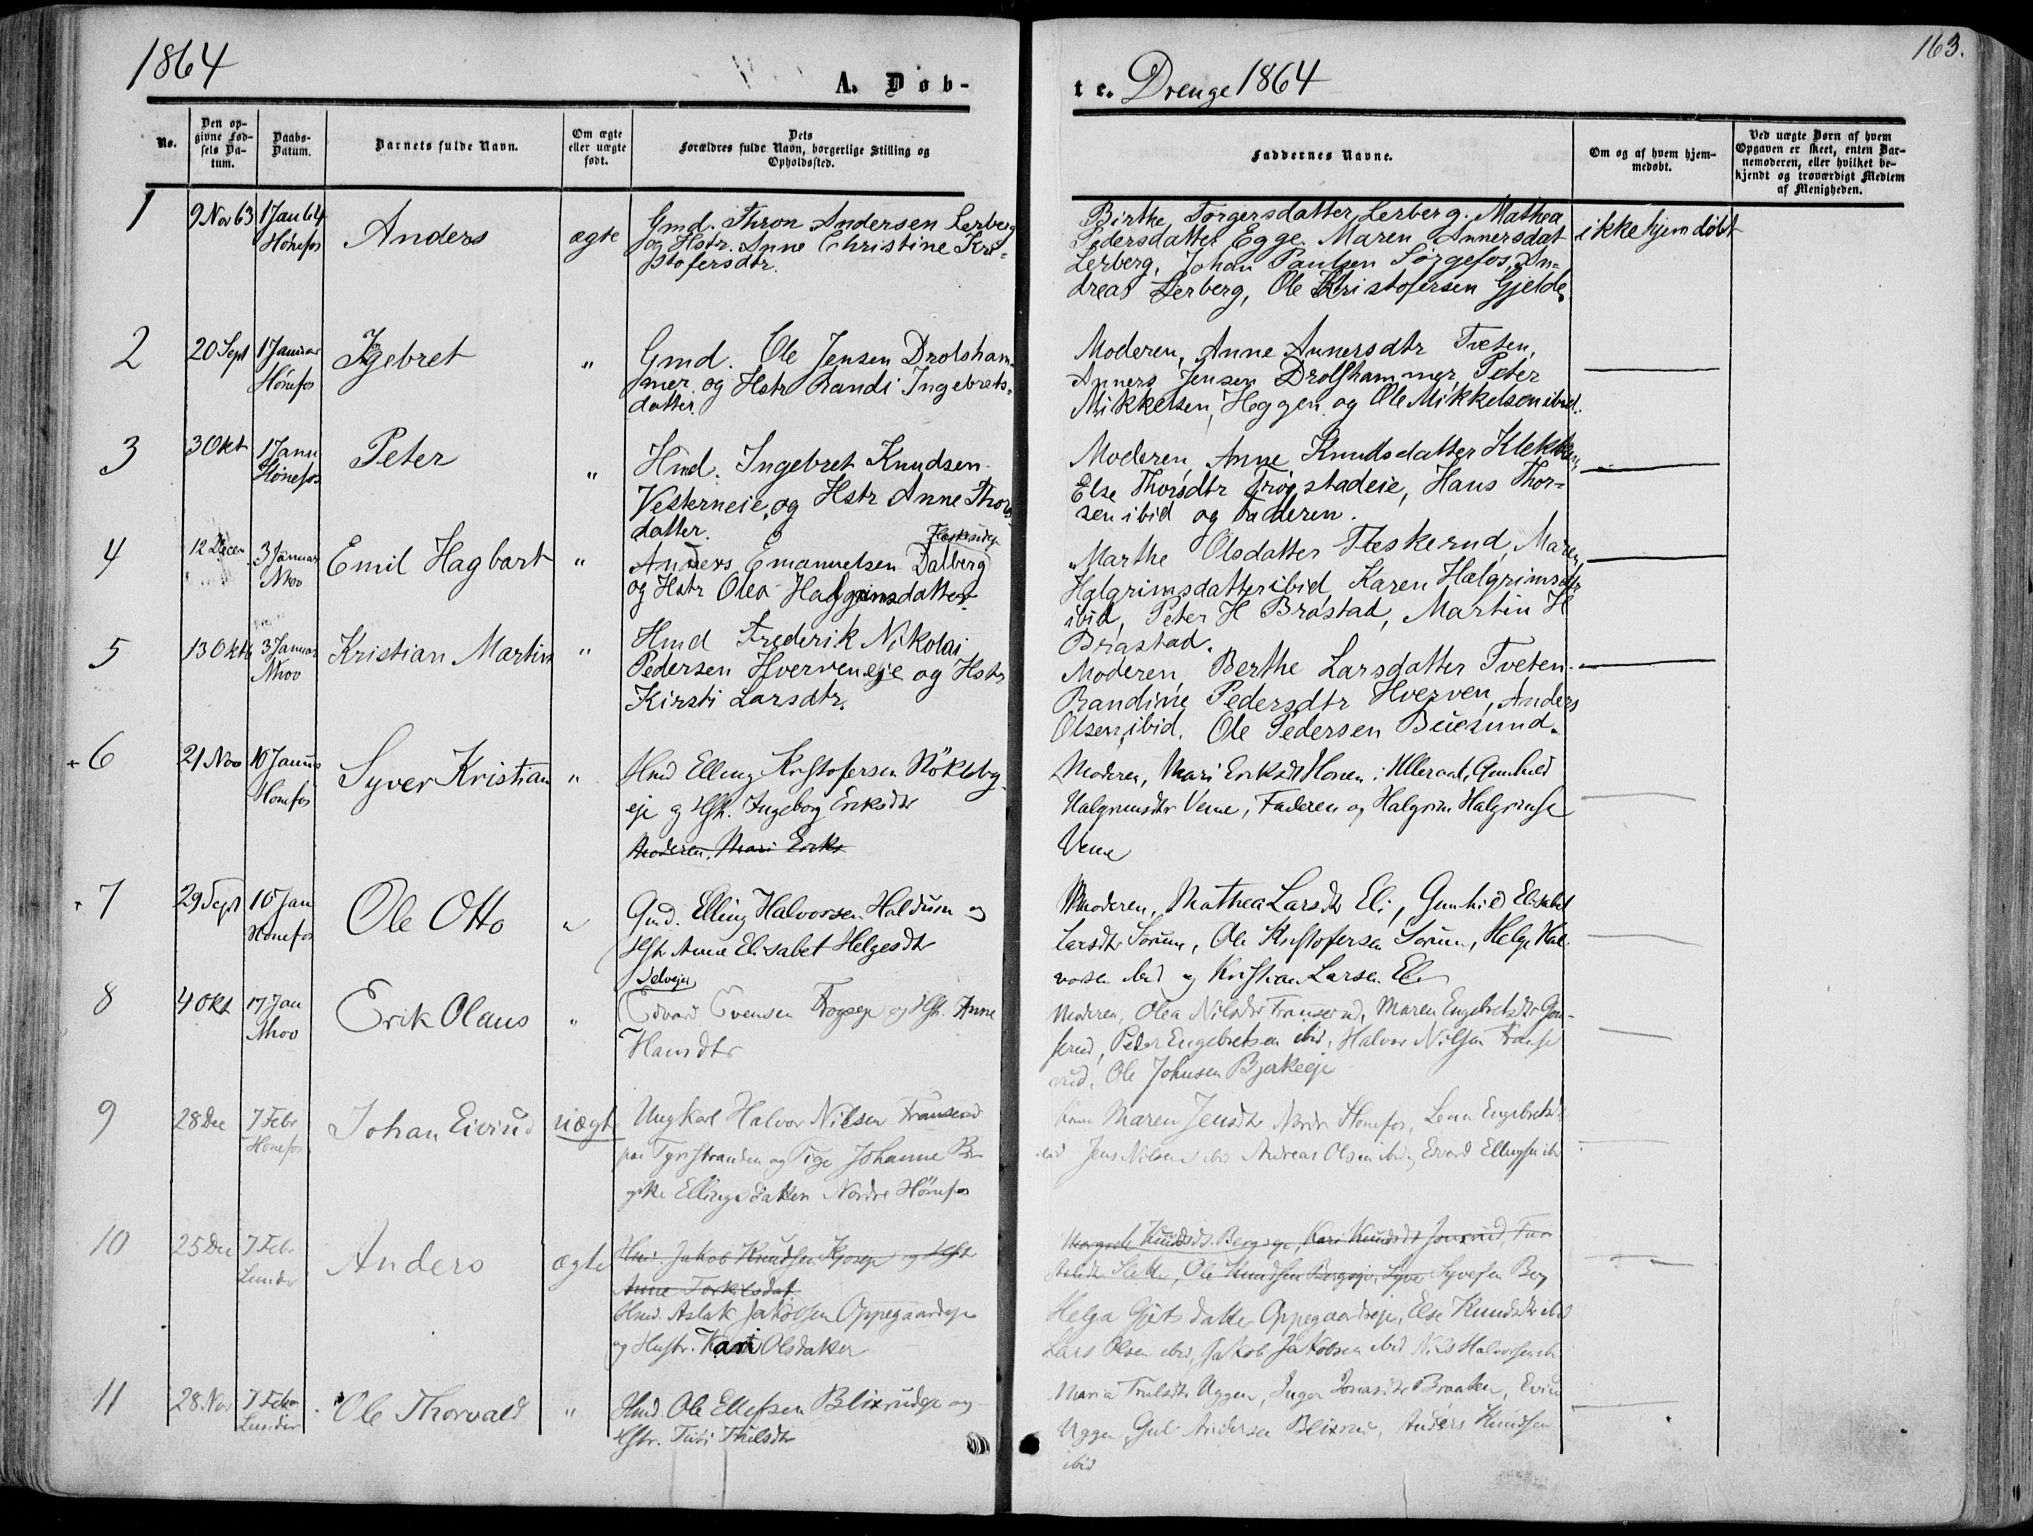 1864
A. Døb-
te. Drenge 1864
163.
No.
Den op-
givne Fød-
sels Da-
tum.
Daabs-
Datum.
Barnets fulde Navn.
Om ægte
eller uægte
født.
Dets
Forældres fulde Navn, borgerlige Stilling og
Opholdssted.
Faddernes Navne.
Om og af hvem hjem-
medøbt.
Ved uægte Børn af hvem
Opgaven er skeet, enten Bar-
nemoderen, eller hvilket be-
kjendt og troværdigt Medlem
af Menigheden.
1
9 Nov 63
1 Jan 64
Hønefos
Anders
ægte
Gmd. Thron Andersen Lerberg
og Hstr. Anne Christine Kri-
stofersdtr.
Birthe Torgersdatter Lerberg. Mathea
Pedersdatter Egge. Maren Annersdat
Lerberg, Johan Paulsen Sørgefos, An-
dreas Lerberg, Ole Kristofersen Gjelde.
ikke hjemdøbt
2
20 Sept
1 Januar
Hönefos
Igebret
"
Gmd. Ole Jensen Drolsham-
mer og Hstr Randi Ingebrets-
datter.
Moderen, Anne Annersdtr Tveten,
Anners Jensen Drolshammer, Peter
Mikkelsen, Heggen og Ole Mikkelsen ibid.
3
3 Okt
1 Janu
Hönefos
Peter
"
Hmd. Ingebret Knudsen
Vesterneie, og Hstr Anne Thors-
datter.
Moderen, Anne Knudsdatter Klekken,
Else Thorsdtr Trøgstadeie, Hans Thor-
sen ibid og Faderen.
4
12 Decem
3 Januar
Nhov
Emil Hagbart
"
Anders Emanuelsen Dalberg
og Hstr Olea Halgrimsdatter
Marthe Olsdatter Fleskerud, Maren
Halgrimsdatter ibid, Karen Halgrimsdtr
ibid, Peter H Bråstad, Martin H
Bråstad.
5
13 Oktb
3 Januar
Nhov
Kristian Martin
"
Hmd Frederik Nikolai
Pedersen Hverveneje og Hstr
Kirsti Larsdtr.
Moderen, Berthe Larsdatter Tveten
Randine Pedersdtr Hverven, Anders
Olsen, ibid. Ole Pedersen
6
21 Nov
10 Januar
Hönefos
Syver Kristian
"
Hmd Elling Kristofersen Nökleby-
eje og Hstr. Ingeborg Eriksdtr
Moderen, Mari Eriks
Moderen, Mari Eriksdtr Honen i Ulleraal, Gunhild
Halgrimsdtr Veme, Faderen og Halgrim Halgrimse
Veme
7
29 Sept
10 Jan
Hönefos
Ole Otto
"
Gmd. Elling Halvorsen Haldum og
Hstr Anne Elisabet Helgesdtr
Moderen, Mathea Larsdtr Eli, Gunhild Elisabet
Larsdtr Sörum, Ole Kristofersen Sörum, Helge Hal-
vorsen ibid og Kristian Larsen Eli
8
4 Okt
17 Jan
Nhov
Erik Olaus
"
Selvejer
Edvard Evensen og Hstr. Anne
Hansdtr
Moderen, Olea Nilsdtr Transerud, Maren Engebretsdtr Gon-
serud, Peder Engebretsen ibid, Halvor Nilsen Transe
rud, Ole Johnsen Bjerkeeje
9
28 Dec
7 Febr
Hönefos
Johan Eivind
uægte
Ungkarl Halvor Nilsen Transerud
paa Tyristranden og Pige Johanne Bir
gitte Ellingsdatter Nordre Hönefos
Maren Jensdtr Nordr Hönefos, Lena Engebretsd
ibid Jens Nilsen ibid Andreas Olsen ibid og Edvard Ellingsen ibid
10
25 Dec
7 Febr
Lunder
Anders
ægte
Hmd. Jakob Knudsen og Hstr
Anne Torkilsdat
Hmd. Aslak Jakobsen Oppegaardeje
og Hustr. Kari Olsdatter
Margrete Knudsdt. Bergseje, Kari Knudsdt
Ole Knudsen Bergseje, Syver Syversen Berg
Helga datter Oppegaardseje, Else Knudsdtr ibid
Lars Olsen ibid, Jakob Jakobsen ibid Nils Halvorsen ibid
11
28 Nov
7 Febr
Lunder
Ole Thorvald
"
Hmd. Ole Ellefsen Blixrudeje og
Hstr. Turi Trulsdtr
Maria Trulsdtr Uggen, Inger Jonasdtr Braaten,
Uggen, Gul Andersen Blixrud, Anders Knudsen
ibid